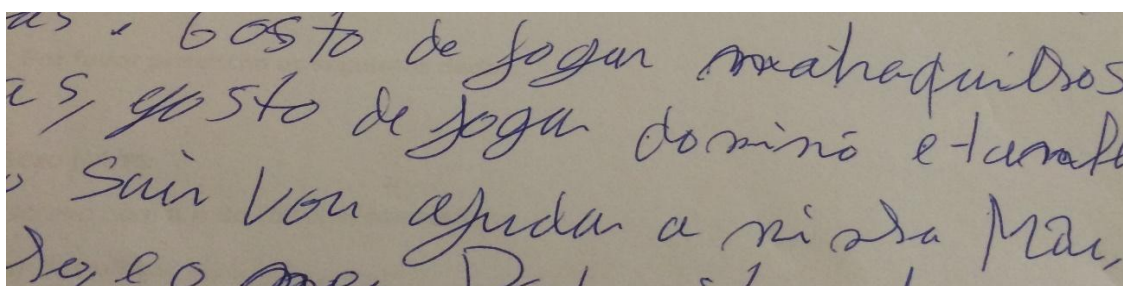 as. Gosto de jogar matraquilhos
as, gosto de jogar dominó e
sair vou ajudar a minha Mãe,
e o meu